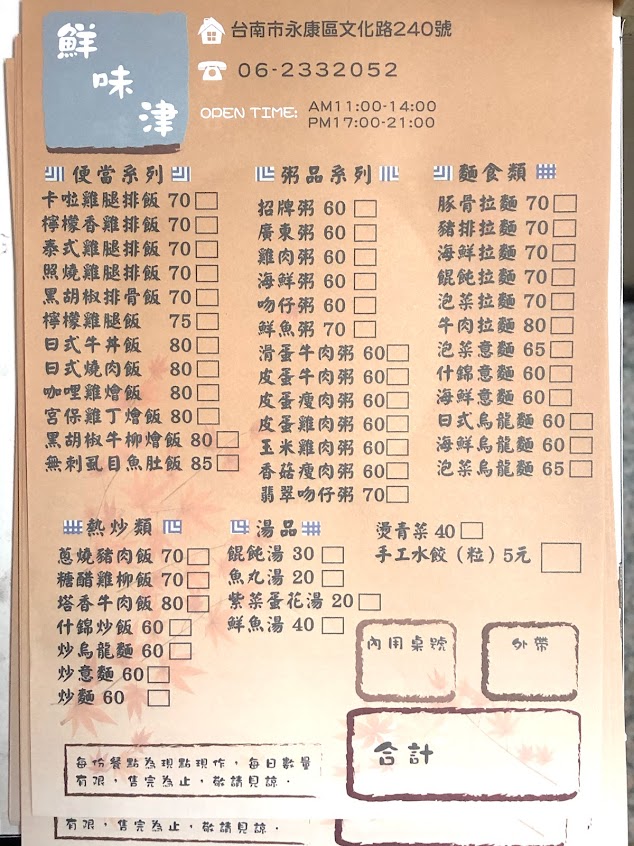 鮮味津
台南市永康區文化路240號
06-2332052
OPEN TIME: AM11:00-14:00
PM17:00-21:00
便當系列
卡啦雞腿排飯 70
檸檬香雞排飯 70
泰式雞腿排飯 70
照燒雞腿排飯 70
黑胡椒排骨飯 70
檸檬雞腿飯 75
日式牛丼飯 80
日式燒肉飯 80
咖哩雞燴飯 80
宮保雞丁燴飯 80
黑胡椒牛柳燴飯 80
無刺虱目魚肚飯 85
粥品系列
招牌粥 60
廣東粥 60
雞肉粥 60
海鮮粥 60
吻仔粥 60
鮮魚粥 70
滑蛋牛肉粥 60
皮蛋牛肉粥 60
皮蛋瘦肉粥 60
皮蛋雞肉粥 60
玉米雞肉粥 60
香菇瘦肉粥 60
翡翠吻仔粥 70
麵食類
豚骨拉麵 70
豬排拉麵 70
海鮮拉麵 70
餛飩拉麵 70
泡菜拉麵 70
牛肉拉麵 80
泡菜意麵 65
什錦意麵 60
海鮮意麵 60
日式烏龍麵 60
海鮮烏龍麵 60
泡菜烏龍麵 65
熱炒類
蔥燒豬肉飯 70
糖醋雞柳飯 70
塔香牛肉飯 80
什錦炒飯 60
炒烏龍麵 60
炒意麵 60
炒麵 60
湯品
餛飩湯 30
魚丸湯 20
紫菜蛋花湯 20
鮮魚湯 40
燙青菜 40
手工水餃（粒）5元
內用桌號
外帶
合計
每份餐點為現點現作，每日數量
有限，售完為止，敬請見諒．
有限，售完為止，敬請見諒．